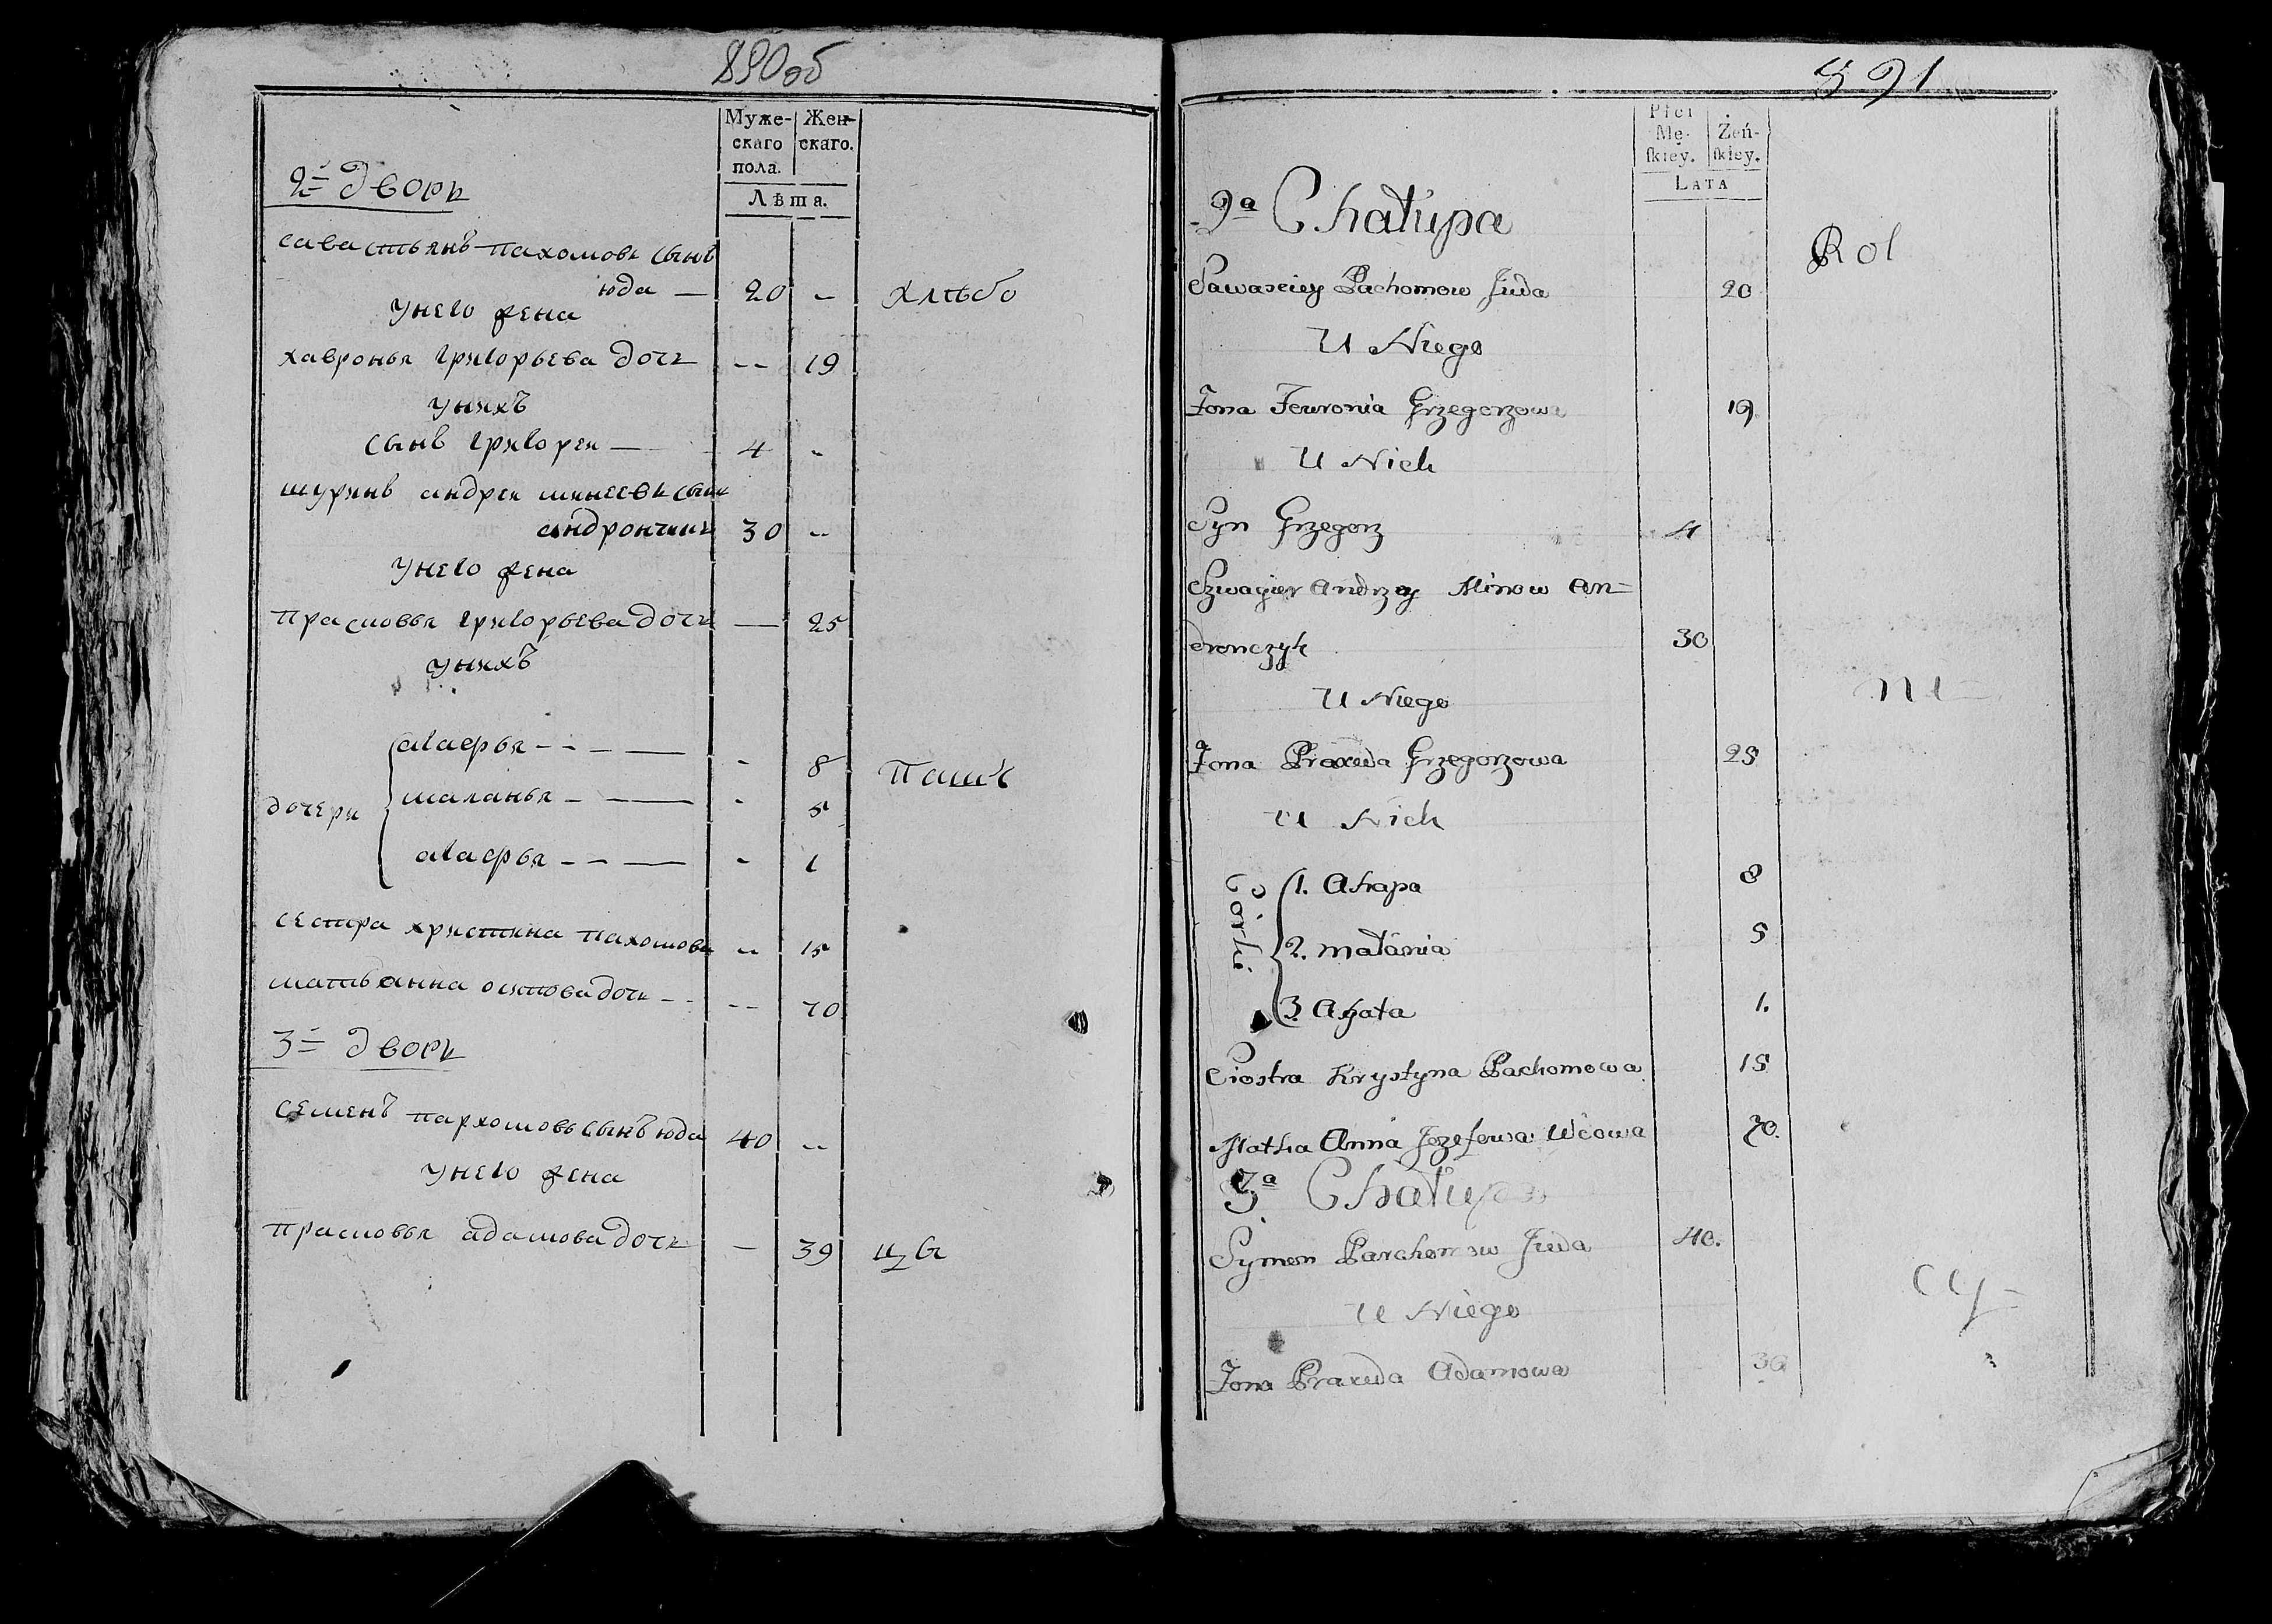 890об
Муже-
скаго
пола.
Жен-
скаго.
Лѣта.
2й дворъ
савастьянъ пахомовъ сынъ
юда — 20 - хлѣбо
унего жена
хавронья григорьева дочь -- 19
унихъ
сынъ григорей — 4 -
шуринъ андрей минеевъ сынъ
андрончикъ 30 --
унего жена
прасковья григорьева дочь — 25
унихъ
дочери
агафья - - - — - 8 паш
маланья - - — - 5
агафья - - — - 1
сестра христина пахомова -- 15
мать анна осипова дочь - - -- 70
3й дворъ
семенъ пархомовъ сынъ юда 40 --
унего жена
прасковья адамова дочь — 39 цы
891
Płci
Mę-
ſkiey.
Żeń-
ſkiey.
LATA
2a Chałupa
Rol
Sawasciey Pachomow Juda 20
U Niego
Żona Fewronia Grzegorzowa 19
U Nich
Syn Grzegorz 4
Szwagier Andrzey Minow An-
dronczyk 30
U Niego
ni-
Żona Praxeda Grzegorzowa 25
U Nich
Córki
1. Ahapa 8
2. Małania 5
3. Agata 1.
Siostra Krystyna Pachomowa 15
Matka Anna Jozefowa Wdowa 70.
3a Chałupa
Symon Parchomow Juda 40.
U Niego
cy-
Żona Praxeda Adamowa 39